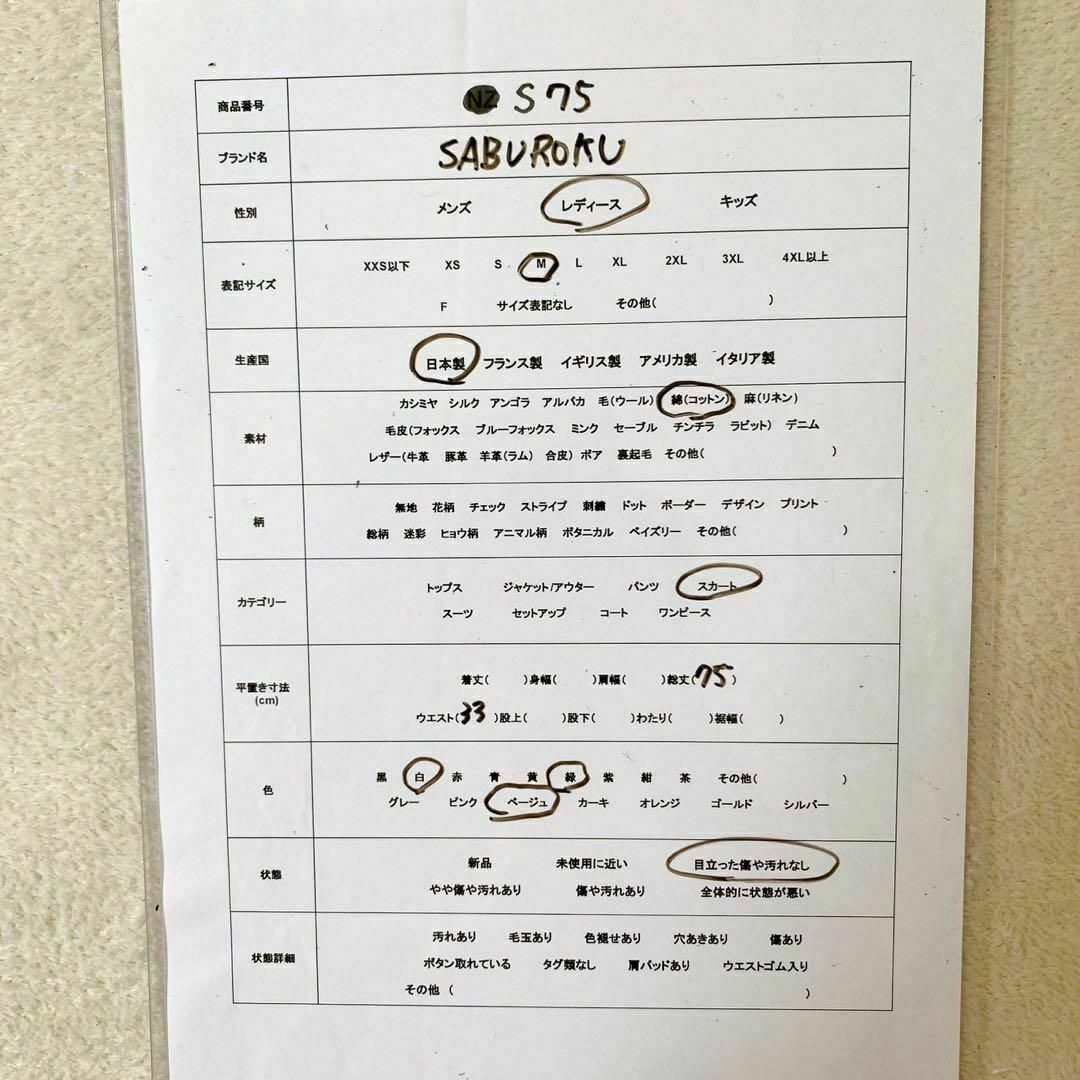 商品番号 NZ S 75
ブランド名 SABUROKU
性別 メンズ レディース キッズ
表記サイズ
XXS以下 XS S M L XL 2XL 3XL 4XL以上
F サイズ表記なし その他( )
生産国 日本製 フランス製 イギリス製 アメリカ製 イタリア製
素材
カシミヤ シルク アンゴラ アルパカ 毛(ウール) 綿(コットン) 麻(リネン)
毛皮(フォックス ブルーフォックス ミンク セーブル チンチラ ラビット) デニム
レザー(牛革 豚革 羊革(ラム) 合皮) ボア 裏起毛 その他( )
柄
無地 花柄 チェック ストライプ 刺繍 ドット ボーダー デザイン プリント
総柄 迷彩 ヒョウ柄 アニマル柄 ボタニカル ペイズリー その他( )
カテゴリー
トップス ジャケット/アウター パンツ スカート
スーツ セットアップ コート ワンピース
平置き寸法
(cm)
着丈( )身幅( )肩幅( )総丈(75)
ウエスト(33)股上( )股下( )わたり( )裾幅( )
色
黒 白 赤 青 黄 緑 紫 紺 茶 その他( )
グレー ピンク ベージュ カーキ オレンジ ゴールド シルバー
状態
新品 未使用に近い 目立った傷や汚れなし
やや傷や汚れあり 傷や汚れあり 全体的に状態が悪い
状態詳細
汚れあり 毛玉あり 色褪せあり 穴あきあり 傷あり
ボタン取れている タグ類なし 肩パッドあり ウエストゴム入り
その他 ( )